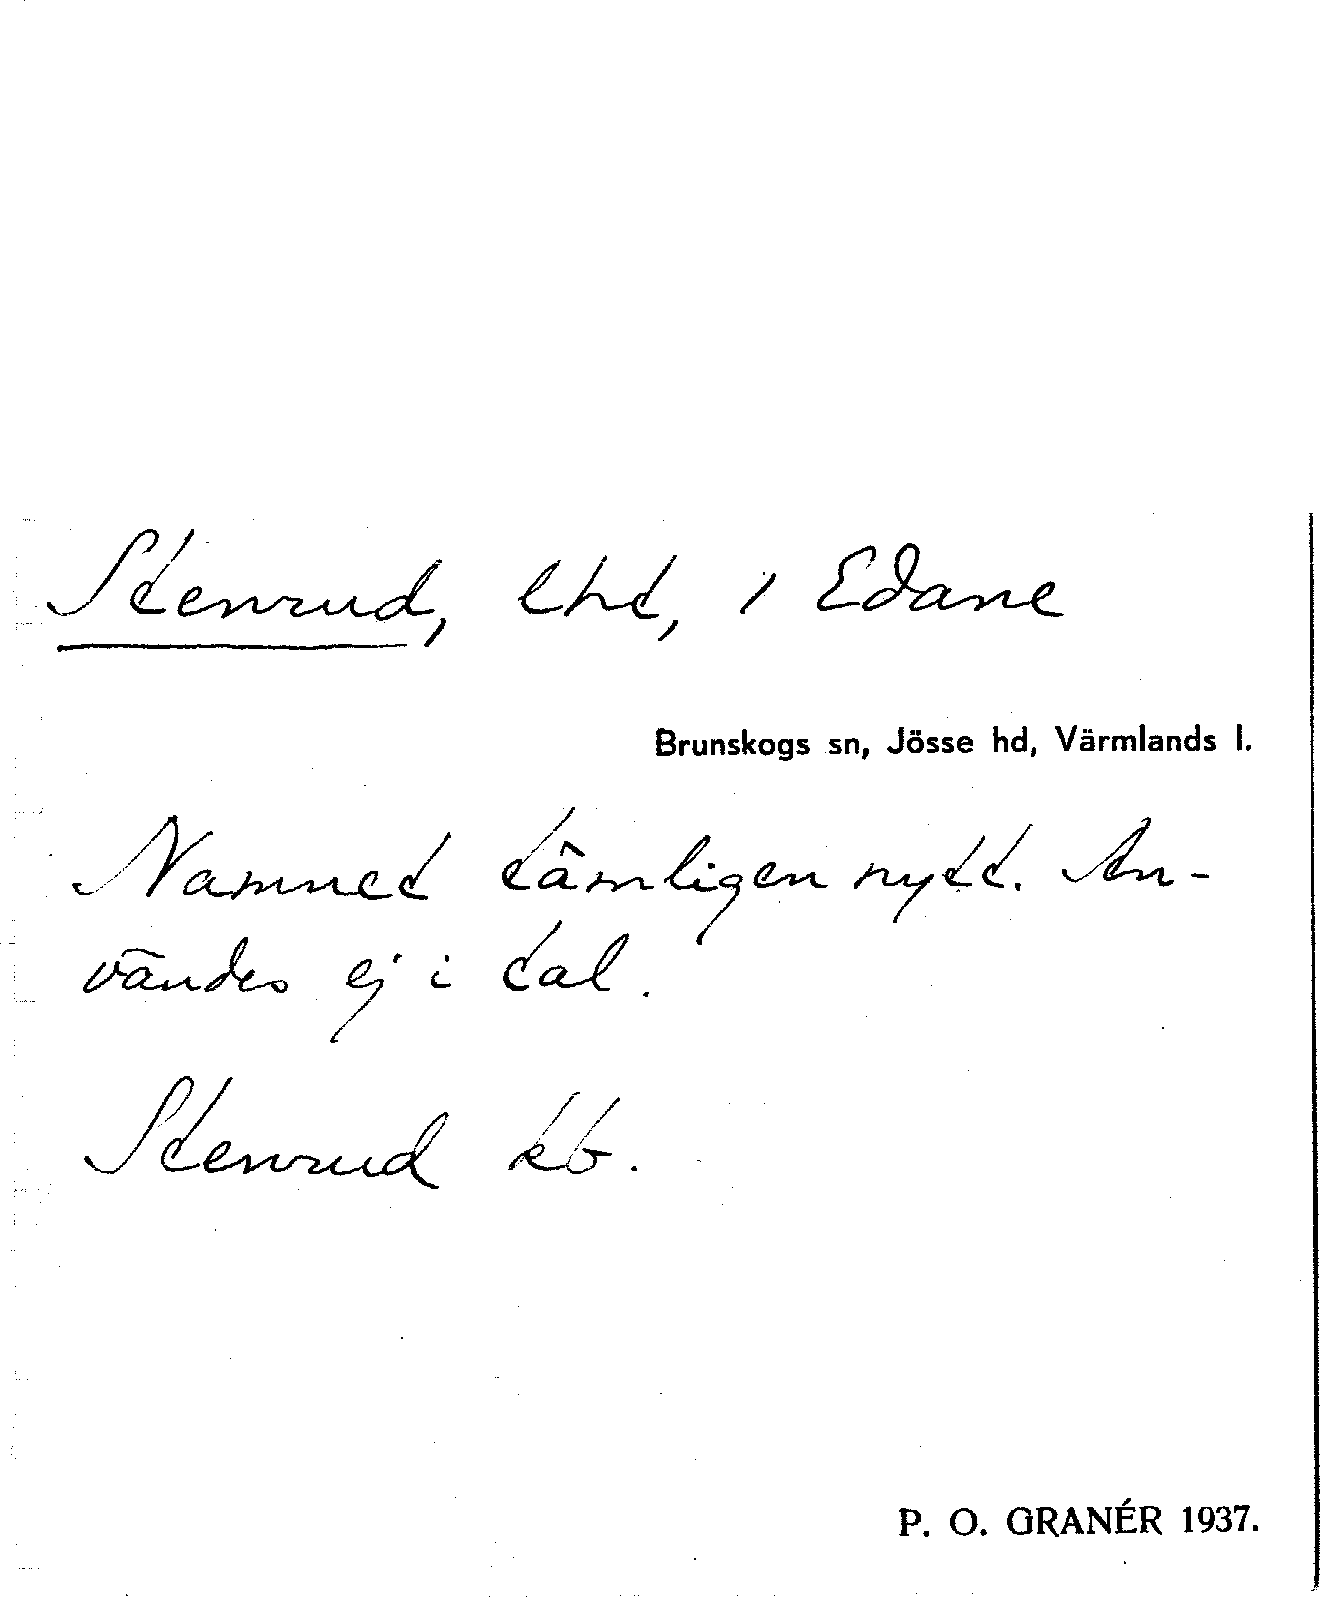 Stenrud, lht, i Edane
Brunskogs sn, Jösse hd, Värmlands l.
Namnet tämligen nytt. An-
vändes ej i tal.
Stenrud kb.
P. O. GRANÉR 1937.